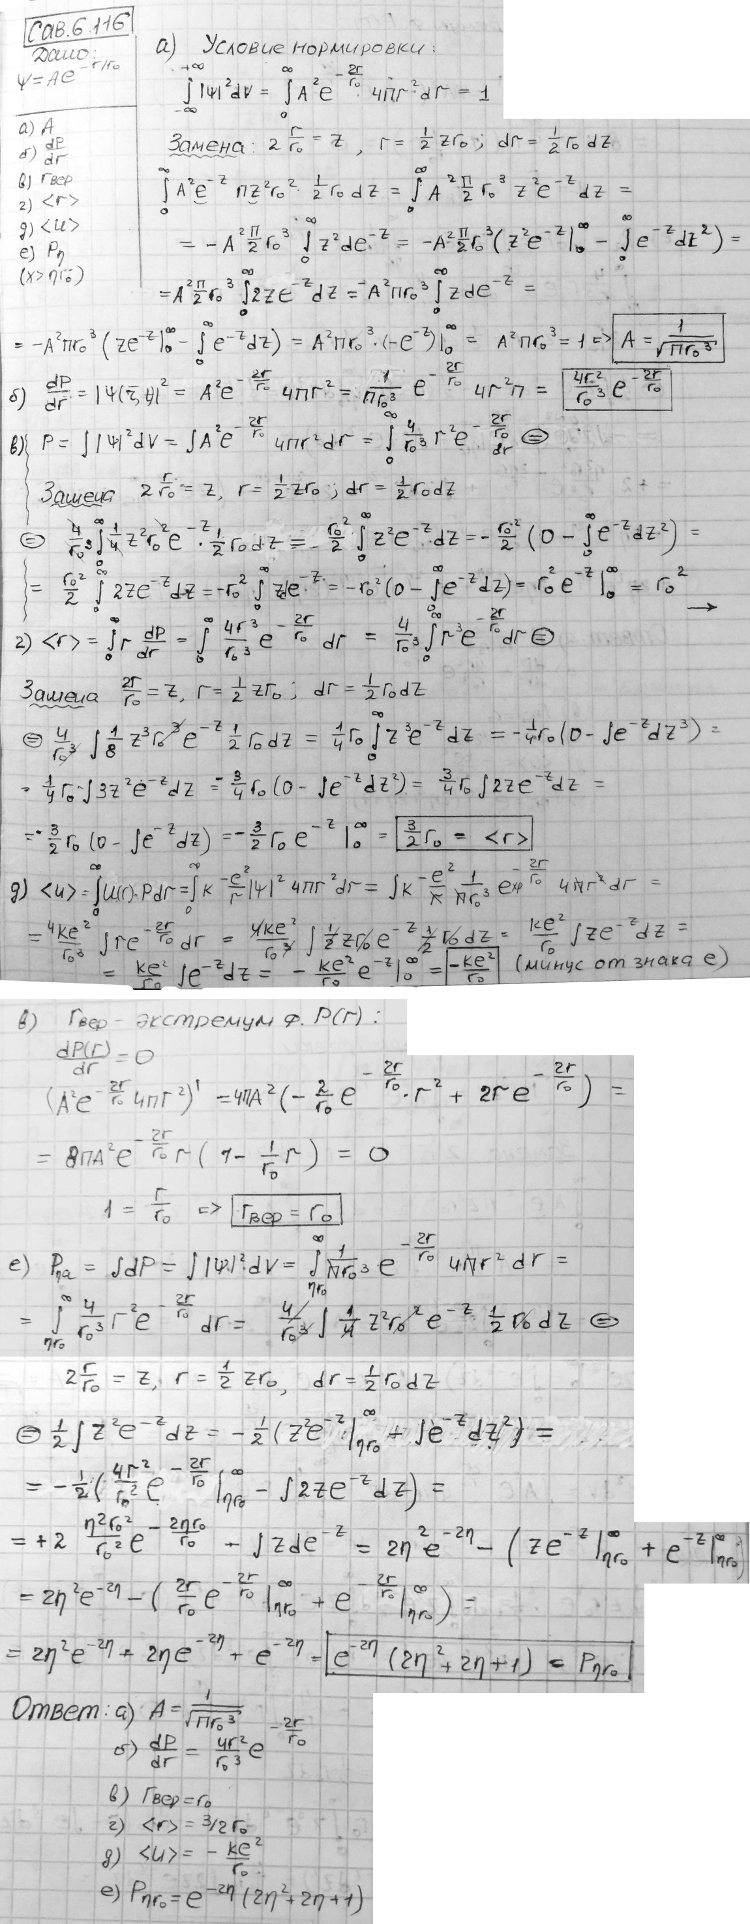 Сав.6.116
Дано:
ψ = Ae^{-r/r₀}
а) A
б) dP/dr
в) rвер
г) <r>
д) <u>
е) Pη
(x>ηr₀)
а) Условие нормировки:
∫_{-∞}^{+∞} |ψ|²dV = ∫₀^∞ A²e^{-2r/r₀} 4πr²dr = 1
Замена: 2 r/r₀ = z, r = 1/2 zr₀; dr = 1/2 r₀ dz
∫₀^∞ A²e^{-z} πz²r₀² · 1/2 r₀ dz = ∫₀^∞ A² π/2 r₀³ z²e^{-z}dz =
= -A² π/2 r₀³ ∫₀^∞ z²de^{-z} = -A² π/2 r₀³ (z²e^{-z}|₀^∞ - ∫₀^∞ e^{-z}dz²) =
= A² π/2 r₀³ ∫₀^∞ 2ze^{-z}dz = -A²πr₀³ ∫₀^∞ zde^{-z} =
= -A²πr₀³ (ze^{-z}|₀^∞ - ∫₀^∞ e^{-z}dz) = A²πr₀³·(-e^{-z})|₀^∞ = A²πr₀³ = 1 => A = 1/√(πr₀³)
б) dP/dr = |ψ(r,φ)|² = A²e^{-2r/r₀} 4πr² = 1/(πr₀³) e^{-2r/r₀} 4r²π = 4r²/r₀³ e^{-2r/r₀}
в) P = ∫|ψ|²dV = ∫A²e^{-2r/r₀} 4πr²dr = ∫₀^∞ 4/r₀³ r²e^{-2r/r₀} dr ⊜
Замена 2 r/r₀ = z, r = 1/2 zr₀; dr = 1/2 r₀dz
⊜ 4/r₀³ ∫₀^∞ 1/4 z²r₀²e^{-z} · 1/2 r₀dz = - r₀²/2 ∫₀^∞ z²e^{-z}dz = - r₀²/2 (0 - ∫₀^∞ e^{-z}dz²) =
= r₀²/2 ∫₀^∞ 2ze^{-z}dz = -r₀² ∫₀^∞ zde^{-z} = -r₀²(0 - ∫₀^∞ e^{-z}dz) = r₀²e^{-z}|₀^∞ = r₀² →
г) <r> = ∫₀^∞ r dP/dr = ∫₀^∞ 4r³/r₀³ e^{-2r/r₀} dr = 4/r₀³ ∫₀^∞ r³e^{-2r/r₀}dr ⊜
Замена 2r/r₀ = z, r = 1/2 zr₀; dr = 1/2 r₀dz
⊜ 4/r₀³ ∫ 1/8 z³r₀³e^{-z} 1/2 r₀dz = 1/4 r₀ ∫₀^∞ z³e^{-z}dz = -1/4 r₀(0 - ∫e^{-z}dz³) =
= 1/4 r₀·∫3z²e^{-z}dz = -3/4 r₀(0 - ∫e^{-z}dz²) = 3/4 r₀∫2ze^{-z}dz =
= -3/2 r₀(0 - ∫e^{-z}dz) = -3/2 r₀e^{-z}|₀^∞ = 3/2 r₀ = <r>
д) <u> = ∫₀^∞ U(r)·Pdr = ∫₀^∞ k -e²/r |ψ|² 4πr²dr = ∫k -e²/r 1/(πr₀³) e^{-2r/r₀} 4πr²dr =
= 4ke²/r₀³ ∫re^{-2r/r₀}dr = 4ke²/r₀³ ∫ 1/2 zr₀e^{-z} 1/2 r₀dz = ke²/r₀ ∫ze^{-z}dz =
= ke²/r₀ ∫e^{-z}dz = - ke²/r₀ e^{-z}|₀^∞ = -ke²/r₀ (минус от знака e)
в) rвер - экстремум ф. P(r):
dP(r)/dr = 0
(A²e^{-2r/r₀} 4πr²)' = 4πA²(-2/r₀ e^{-2r/r₀}·r² + 2re^{-2r/r₀}) =
= 8πA²e^{-2r/r₀} r (1 - 1/r₀ r) = 0
1 = r/r₀ => rвер = r₀
е) Pηa = ∫dP = ∫|ψ|²dV = ∫_{ηr₀}^∞ 1/(πr₀³) e^{-2r/r₀} 4πr²dr =
= ∫_{ηr₀}^∞ 4/r₀³ r²e^{-2r/r₀} dr = 4/r₀³ ∫ 1/4 z²r₀²e^{-z} 1/2 r₀dz ⊜
2r/r₀ = z, r = 1/2 zr₀, dr = 1/2 r₀dz
⊜ 1/2 ∫z²e^{-z}dz = -1/2 (z²e^{-z}|_{ηr₀}^∞ + ∫e^{-z}dz²) =
= -1/2 (4r²/r₀² e^{-2r/r₀}|_{ηr₀}^∞ - ∫2ze^{-z}dz) =
= +2 η²r₀²/r₀² e^{-2ηr₀/r₀} - ∫zde^{-z} = 2η²e^{-2η} - (ze^{-z}|_{ηr₀}^∞ + e^{-z}|_{ηr₀}^∞)
= 2η²e^{-2η} - (2r/r₀ e^{-2r/r₀}|_{ηr₀}^∞ + e^{-2r/r₀}|_{ηr₀}^∞) =
= 2η²e^{-2η} + 2ηe^{-2η} + e^{-2η} = e^{-2η}(2η²+2η+1) = Pηr₀
Ответ: а) A = 1/√(πr₀³)
б) dP/dr = 4r²/r₀³ e^{-2r/r₀}
в) rвер = r₀
г) <r> = 3/2 r₀
д) <u> = - ke²/r₀
е) Pηr₀ = e^{-2η}(2η²+2η+1)